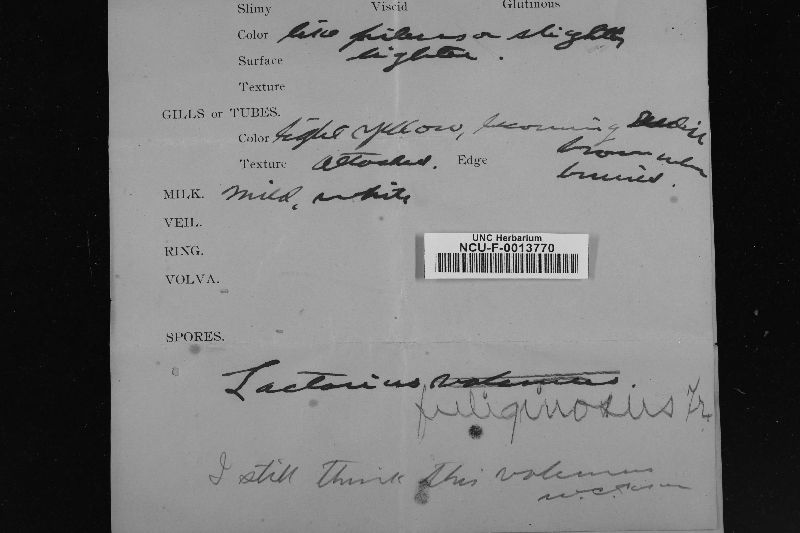 Slimy Viscid Glutinous
Color like pileus or slightly
Surface lighter.
Texture
GILLS or TUBES.
Color light yellow, becoming
Texture attached. Edge brown when
bruised.
MILK. Mild, white
VEIL.
RING.
VOLVA.
UNC Herbarium
NCU-F-0013770
SPORES.
Lactarius volemus.
fuliginosus Fr.
I still think this volemus